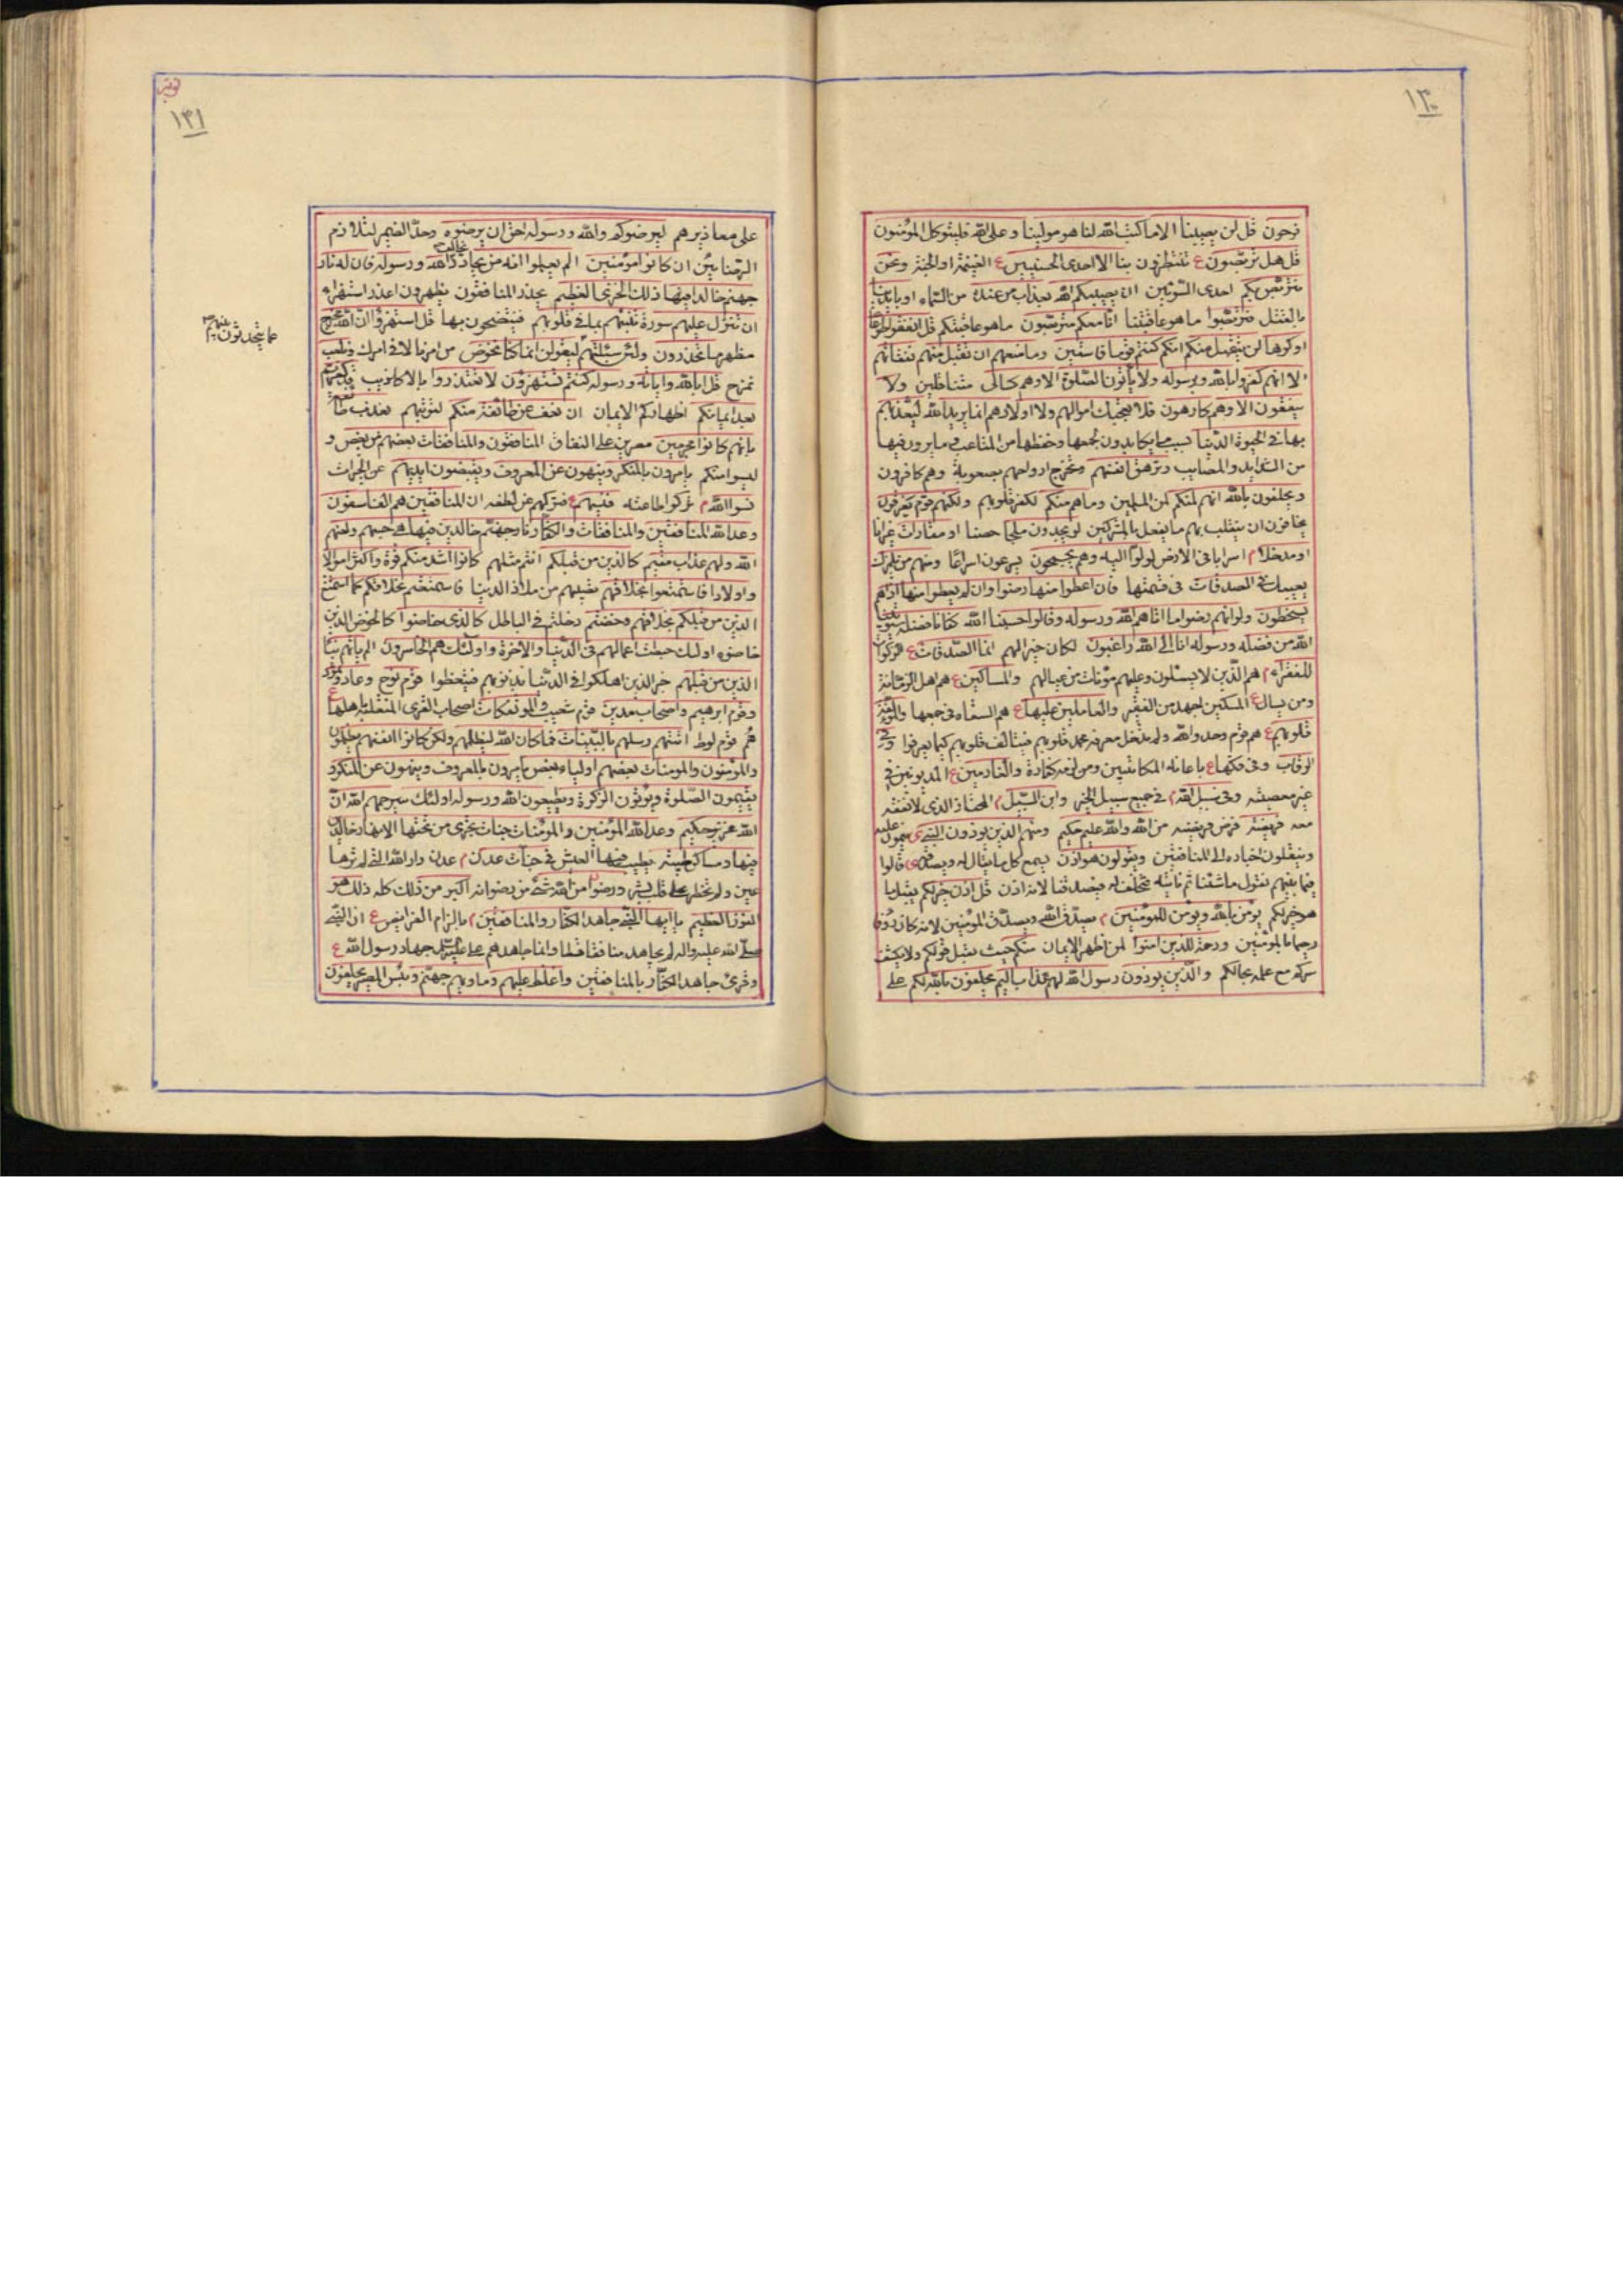 ١٣٠
فرحون قل لن يصيبنا الا ما كتب الله لنا هو مولينا وعلى الله فليتوكل المؤمنون
قل هل تربصون ع تنتظرون بنا الا احدى الحسنيين ع الغنيمة او الجنة ونحن
نتربص بكم احدى السوئيين ان يصيبكم الله بعذاب من عنده من السماء او بايدينا
بالقتل فتربصوا ما هو عاقبتنا انا معكم متربصون ما هو عاقبتكم قل انفقوا طوعا
او كرها لن يتقبل منكم انكم كنتم قوما فاسقين وما منعهم ان تقبل منهم نفقاتهم
الا انهم كفروا بالله وبرسوله ولا ياتون الصلوة الا وهم كسالى متثاقلين ولا
ينفقون الا وهم كارهون فلا تعجبك اموالهم ولا اولادهم انما يريد الله ليعذبهم
بها في الحيوة الدنيا بسبب ما يكابدون لجمعها وحفظها من المتاعب وما يرون فيها
من الشدايد والمصايب وتزهق انفسهم وتخرج ارواحهم بصعوبة وهم كافرون
ويحلفون بالله انهم لمنكم لمن المسلمين وما هم منكم لكفر قلوبهم ولكنهم قوم يفرقون
يخافون ان ينقلب بهم ما يفعل بالمشركين لو يجدون ملجأ حصنا او مغارات غيرانا
او مدخلا م اسرابا في الارض لولوا اليه وهم يجمحون يسرعون اسراعا ومنهم من يلمزك
يعيبك في الصدقات في قسمتها فان اعطوا منها رضوا وان لم يعطوا منها اذا هم
يسخطون ولو انهم رضوا ما اتاهم الله ورسوله وقالوا حسبنا الله كفانا فضله سيؤتينا
الله من فضله ورسوله انا الى الله راغبون لكان خيرا لهم انما الصدقات ع الزكوات
للفقراء م هم الذين لا يسئلون وعليهم مؤنات من عيالهم والمساكين ع هم اهل الزمانة
ومن يسال ع المسكين اجهد من الفقير والعاملين عليها ع هم السعاه في جمعها والمؤلفة
قلوبهم ع هم قوم وحدوا الله ولم يدخل معرفة محمد قلوبهم فيتالف قلوبهم كيما يعرفوا وفي
الرقاب وفي فكها ع باعانه المكاتبين ومن لزمه كفارة والغارمين ع المديونين في
غير معصيته وفي سبيل الله م في جميع سبيل الخير وابن السبيل م المجتاز الذي لا نفقة
معه فريضة فرض فريضه من الله والله عليم حكيم ومنهم الذين يؤذون النبي ى ينمون عليه
وينقلون اخباره الى المنافقين ويقولون هو اذن يسمع كل ما يقال له ويصدقه ى قالوا
فيما بينهم نقول ما شئنا ثم ناتيه فنحلف له فيصدقنا لانه اذن قل اذن خير لكم يقبل ما
هو خير لكم يؤمن بالله ويؤمن للمؤمنين م يصدق الله ويصدق المؤمنين لانه كان رؤفا
رحيما بالمؤمنين ورحمة للذين امنوا لمن اظهر الايمان منكم حيث يقبل قولكم ولا يكشف
سركم مع علمه بحالكم والذين يؤذون رسول الله لهم عذاب اليم يحلفون بالله لكم على
توبة
١٣١
على معاذيرهم ليرضوكم والله ورسوله احق ان يرضوه وحد الضمير لتلازم
الرضائين ان كانوا مؤمنين الم يعلموا انه من يحادد يخالف الله ورسوله فان له نار
جهنم خالدا فيها ذلك الخزي العظيم يحذر المنافقون يظهرون اعذر استهزاء
ان تنزل عليهم سورة تنبئهم بما في قلوبهم فيفتضحون بها قل استهزؤا ان الله مخرج
مظهر ما تحذرون ولئن سئلتهم ليقولن انما كنا نخوض من امر نا لا في امرك ونلعب
نمزح قل ابالله واياته ورسوله كنتم تستهزؤن لا تعتذروا بالاكاذيب قد كفرتم
بعد ايمانكم اظهاركم الايمان ان نعف عن طائفة منكم لتوبتهم نعذب طائفة
بانهم كانوا مجرمين مصرين على النفاق المنافقون والمنافقات بعضهم من بعض و
ليسوا منكم يامرون بالمنكر وينهون عن المعروف ويقبضون ايديهم عن الخيرات
نسوا الله م تركوا طاعته فنسيهم ع فتركهم عن لطفه ان المنافقين هم الفاسقون
وعد الله المنافقين والمنافقات والكفار نار جهنم خالدين فيها هي حسبهم ولعنهم
الله ولهم عذاب مقيم كالذين من قبلكم انتم مثلهم كانوا اشد منكم قوة واكثر اموالا
واولادا فاستمتعوا بخلاقهم نصيبهم من ملاذ الدنيا فاستمتعتم بخلاقكم كما استمتع
الذين من قبلكم بخلاقهم وخضتم دخلتم في الباطل كالذي خاضوا كالخوض الذين
خاضوه اولئك حبطت اعمالهم في الدنيا والاخرة واولئك هم الخاسرون الم ياتهم نبأ
الذين من قبلهم خبر الذين اهلكوا في الدنيا بذنوبهم فيتعظوا قوم نوح وعاد وثمود
وقوم ابرهيم واصحاب مدين قوم شعيب والمؤتفكات اصحاب القرى المنقلبة باهلها ع
هم قوم لوط اتتهم رسلهم بالبينات فما كان الله ليظلمهم ولكن كانوا انفسهم يظلمون
والمؤمنون والمؤمنات بعضهم اولياء بعض يامرون بالمعروف وينهون عن المنكر و
يقيمون الصلوة ويؤتون الزكوة ويطيعون الله ورسوله اولئك سيرحمهم الله ان
الله عزيز حكيم وعد الله المؤمنين والمؤمنات جنات تجري من تحتها الانهار خالدين
فيها ومساكن طيبة يطيب فيها العيش في جنات عدن م عدن دار الله التي لم ترها
عين ولم تخطر على قلب بشر ورضوان من الله شئ من رضوانه اكبر من ذلك كله ذلك هو
الفوز العظيم يا ايها النبي جاهد الكفار والمنافقين م بالزام الفرايض ع ان النبي
صلى الله عليه واله لم يجاهد منافقا قط وانما جاهدهم على جهاد رسول الله ع
وقرئ جاهد الكفار بالمنافقين واغلظ عليهم وماويهم جهنم وبئس المصير يحلفون
عما يتحدثون بينهم